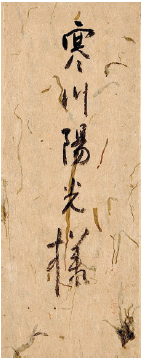 寒川陽光様